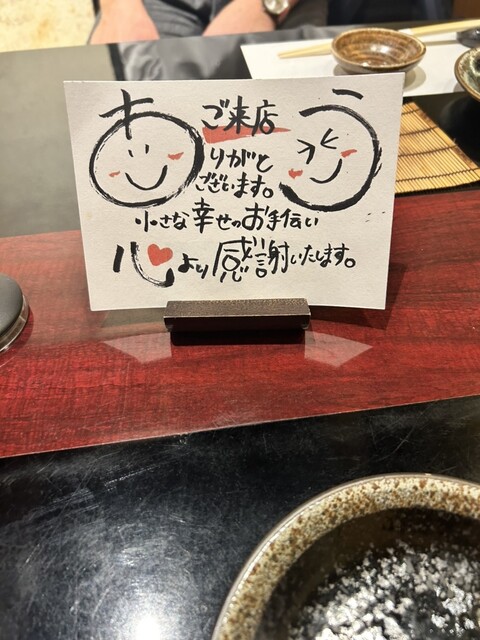 ご来店
ありがとう
ございます。
小さな幸せのお手伝い
心より感謝いたします。